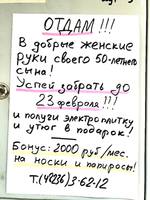 ОТДАМ!!!
В добрые женские
руки своего 50-летнего
сына!
Успей забрать до
23 февраля!!!
и получи электроплитку
и утюг в подарок!
Бонус: 2000 руб/мес.
на носки и папиросы!
т.(48236)3-62-12